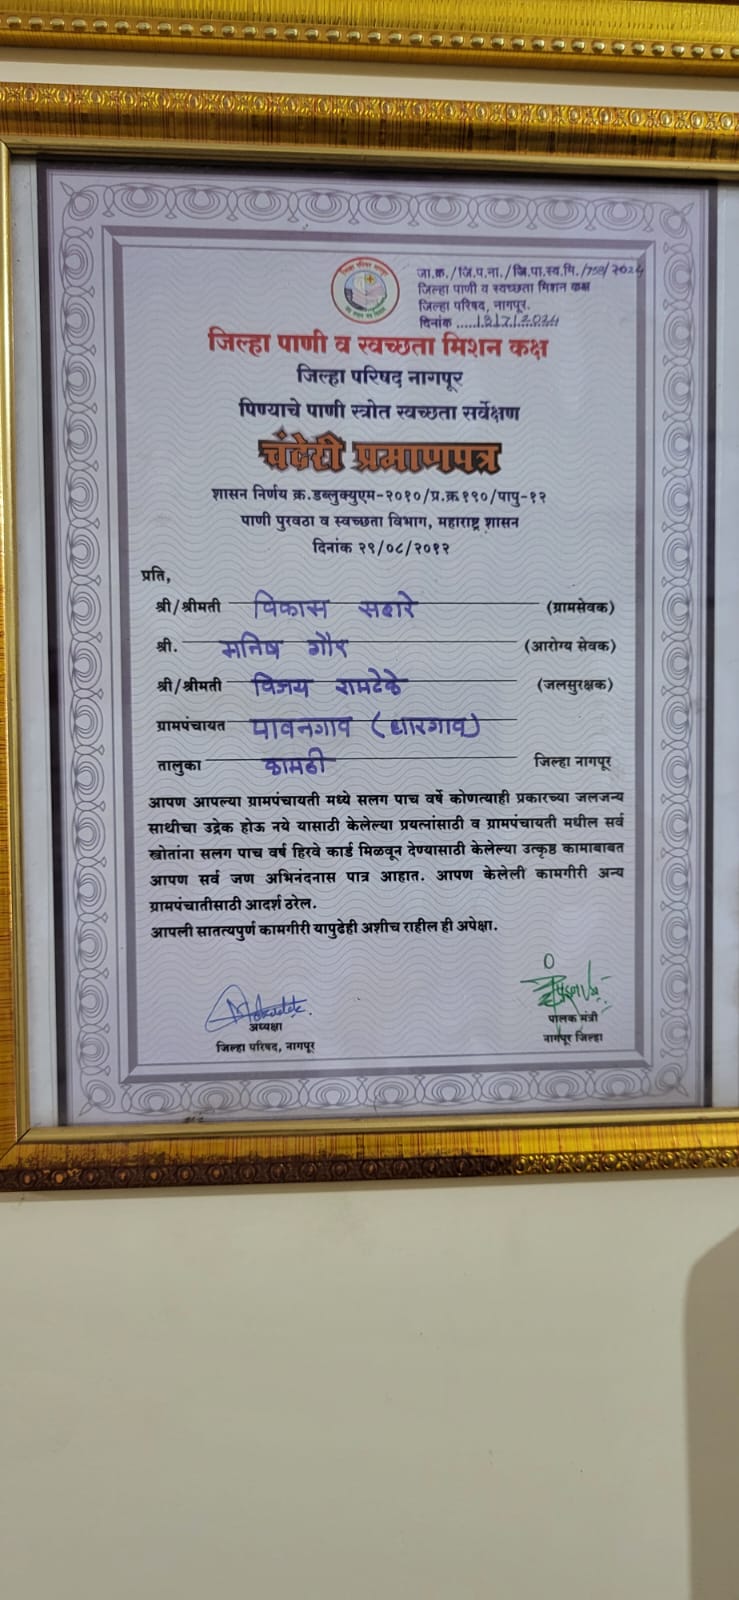 जा.क्र./जि.प.ना./जि.पा.स्व.मि./758/2024
जिल्हा पाणी व स्वच्छता मिशन कक्ष
जिल्हा परिषद, नागपूर.
दिनांक .....18/7/2024
जिल्हा पाणी व स्वच्छता मिशन कक्ष
जिल्हा परिषद नागपूर
पिण्याचे पाणी स्त्रोत स्वच्छता सर्वेक्षण
चंदेरी प्रमाणपत्र
शासन निर्णय क्र.डब्लुक्युएम-२०१०/प्र.क्र१९०/पापु-१२
पाणी पुरवठा व स्वच्छता विभाग, महाराष्ट्र शासन
दिनांक २९/०८/२०१२
प्रति,
श्री/श्रीमती विकास सहारे (ग्रामसेवक)
श्री. मनिष गौर (आरोग्य सेवक)
श्री/श्रीमती विजय रामटेके (जलसुरक्षक)
ग्रामपंचायत पावनगाव (धारगाव)
तालुका कामठी जिल्हा नागपूर
आपण आपल्या ग्रामपंचायती मध्ये सलग पाच वर्षे कोणत्याही प्रकारच्या जलजन्य
साथीचा उद्रेक होऊ नये यासाठी केलेल्या प्रयत्नांसाठी व ग्रामपंचायती मधील सर्व
स्त्रोतांना सलग पाच वर्ष हिरवे कार्ड मिळवून देण्यासाठी केलेल्या उत्कृष्ठ कामाबाबत
आपण सर्व जण अभिनंदनास पात्र आहात. आपण केलेली कामगीरी अन्य
ग्रामपंचातीसाठी आदर्श ठरेल.
आपली सातत्यपुर्ण कामगीरी यापुढेही अशीच राहील ही अपेक्षा.
अध्यक्षा
जिल्हा परिषद, नागपूर
पालक मंत्री
नागपूर जिल्हा